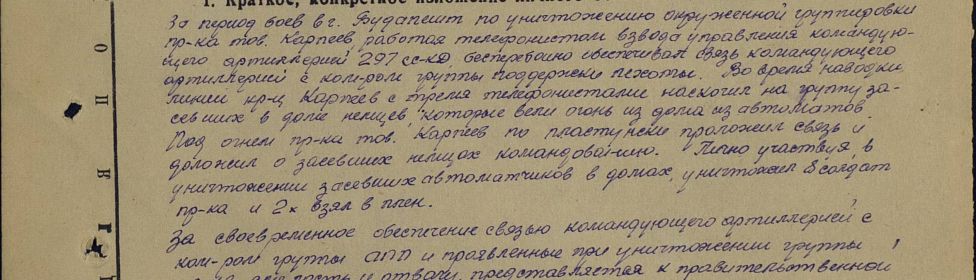 1. Краткое, конкретное изложение
За период боев в г. Будапешт по уничтожению окруженной группировки
пр-ка тов. Карпеев работая телефонистом взвода управления командую-
щего артиллерией 297 сс-кд бесперебойно обеспечивал связь командующего
артиллерией с ком-ром группы поддержки пехоты. Во время наводки
линии кр-ц Карпеев с тремя телефонистами наскочил на группу за-
севших в доме немцев, которые вели огонь из дома из автоматов.
Под огнем пр-ка тов. Карпеев по пластунски проложил связь и
доложил о засевших немцах командованию. Лично участвуя в
уничтожении засевших автоматчиков в домах, уничтожил 8 солдат
пр-ка и 2х взял в плен.
За своевременное обеспечение связью командующего артиллерией с
ком-ром группы АПП и проявленные при уничтожении группы
и отвагу представляется к правительственной
О
П
В
Г